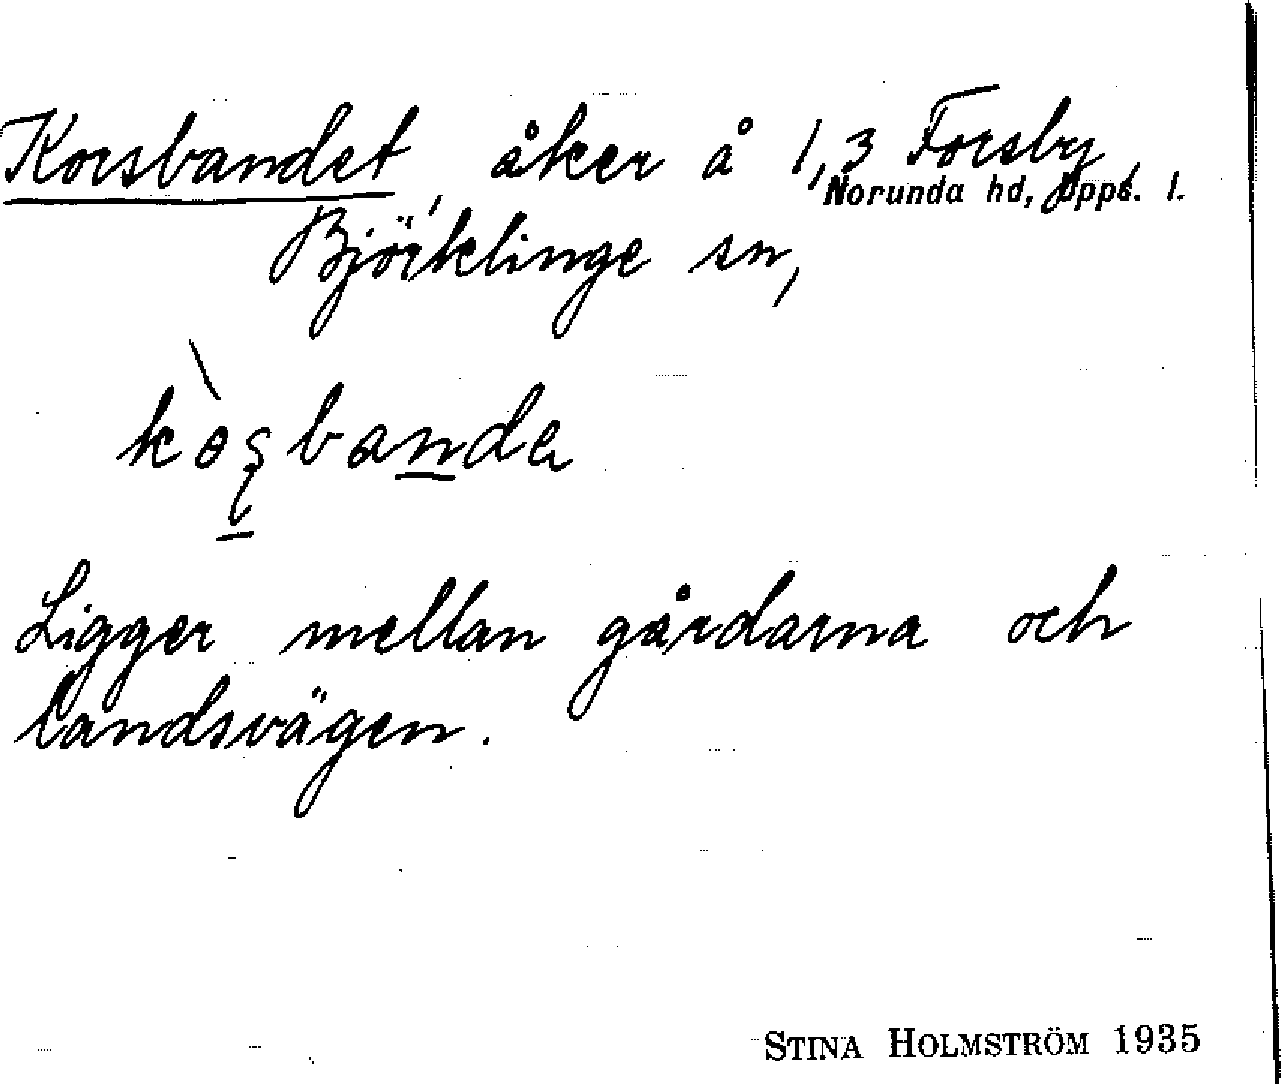 Korsbandet, åker å 1,3 Forsby,
Norunda hd, Upps. l.
Björklinge sn,
Ligger mellan gårdarna och
landsvägen.
STINA HOLMSTRÖM 1935